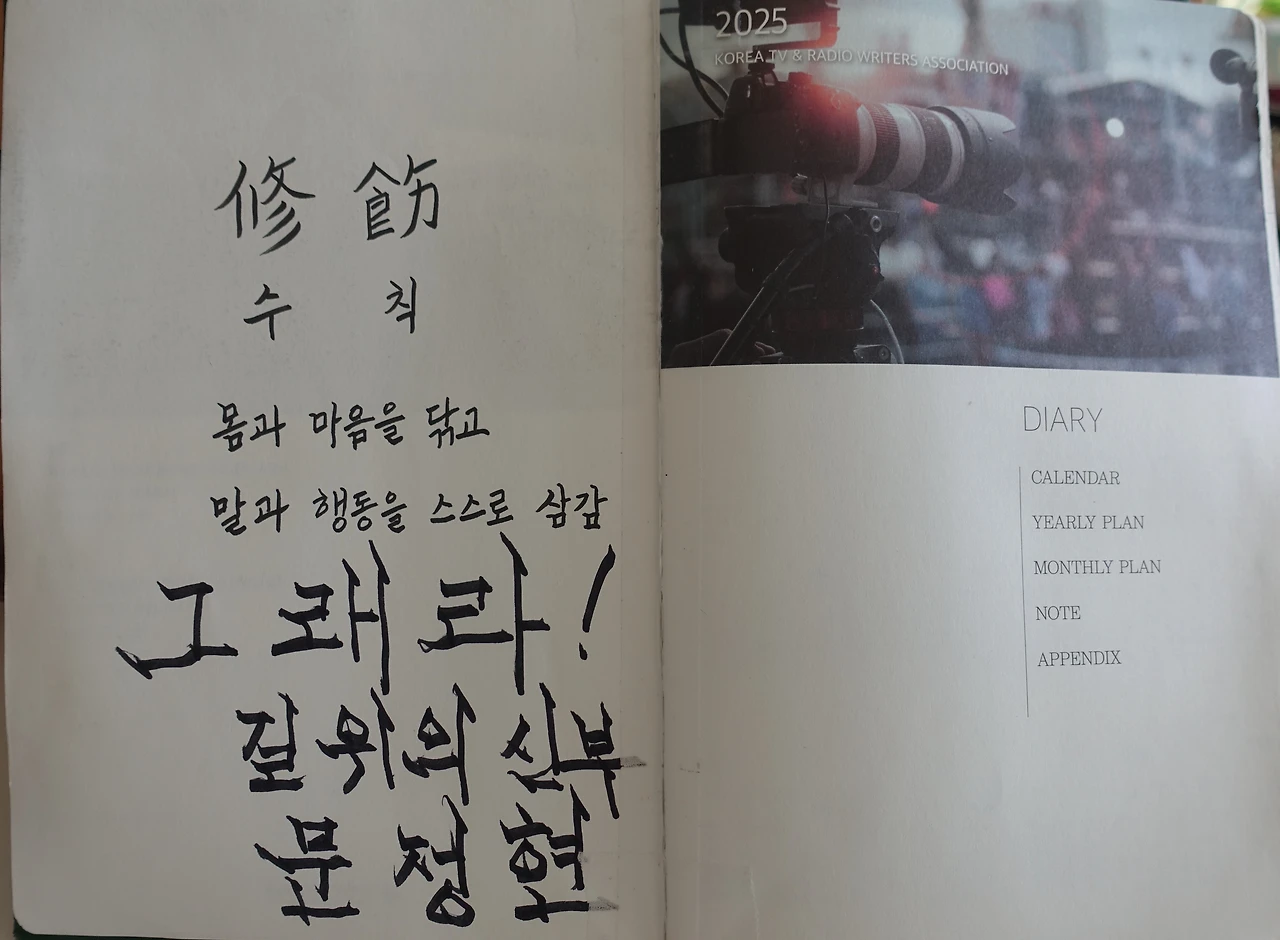 修 飭
수 칙
몸과 마음을 닦고
말과 행동을 스스로 삼감
그 래 라 !
길 위의 신부
문 정 현
2025
KOREA TV & RADIO WRITERS ASSOCIATION
DIARY
CALENDAR
YEARLY PLAN
MONTHLY PLAN
NOTE
APPENDIX